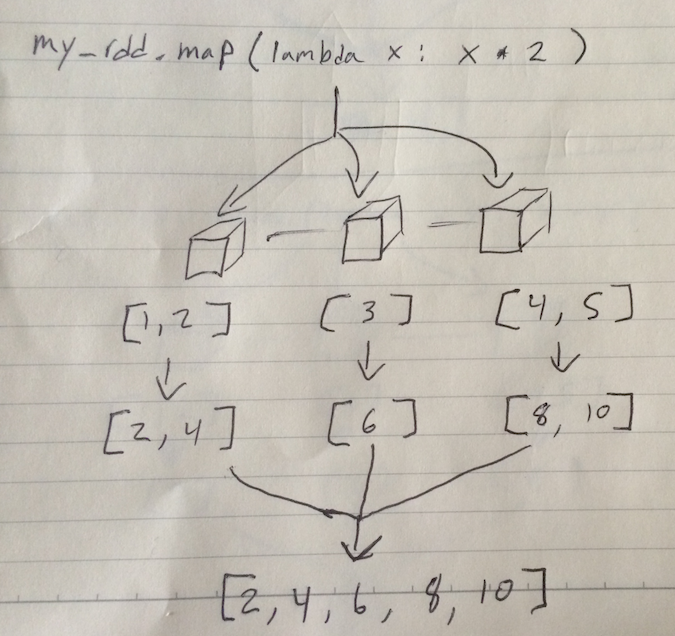 my_rdd.map(lambda x: x * 2)
[1,2] [3] [4, 5]
[2,4] [6] [8, 10]
[2, 4, 6, 8, 10]